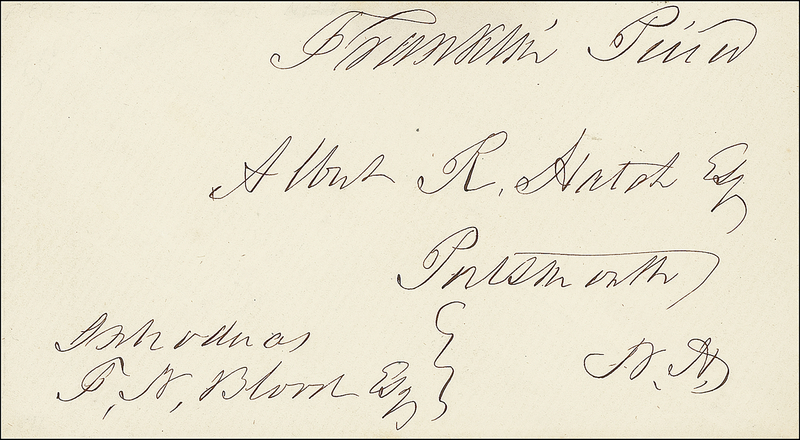 Franklin Pierce
Albert R. Hatch Esq
Portsmouth
N. H.
Introduces
F, N, Blood Esq